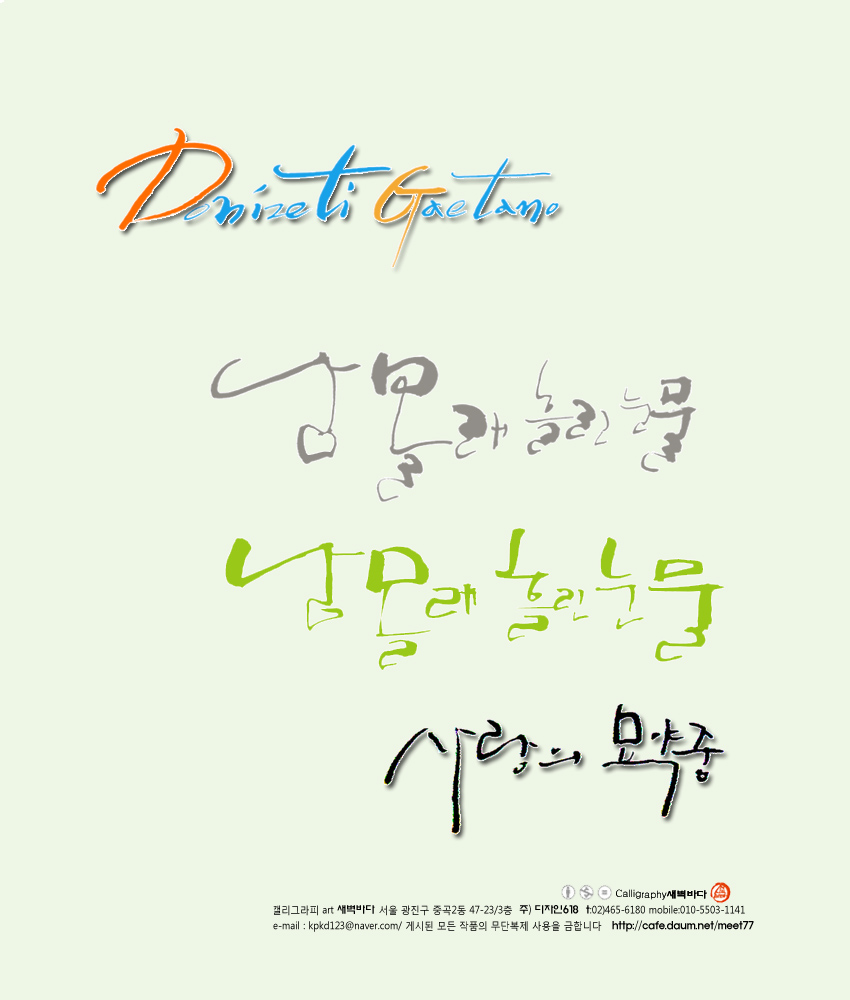 Donizeti Gaetano
남 몰래 흘린 눈물
남 몰래 흘린 눈물
사랑의 묘약중
Calligraphy새벽바다
캘리그라피 art 새벽바다 서울 광진구 중곡2동 47-23/3층 주) 디자인618 t:02)465-6180 mobile:010-5503-1141
e-mail : kpkd123@naver.com/ 게시된 모든 작품의 무단복제 사용을 금합니다 http://cafe.daum.net/meet77